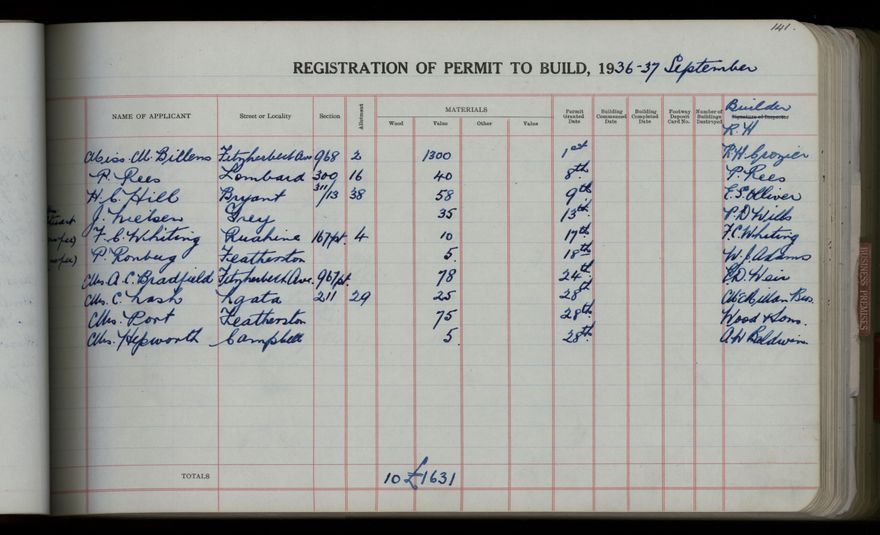 141.
REGISTRATION OF PERMIT TO BUILD, 1936-37 September
NAME OF APPLICANT Street or Locality Section Allotment MATERIALS Permit Granted Date Building Commenced Date Building Completed Date Footway Deposit Card No. Number of Buildings Destroyed Builder Signature of Inspector
Wood Value Other Value R.H
Miss. M. Billens Fitzherbert Ave 968 2 1300 1st R.H. Crozier
P. Rees Lombard 300 16 40 8th P. Rees
H. C. Hill Bryant 311/13 38 58 9th E. S. Olliver
J. Nielsen Grey 35 13th P. D. Wills
F. C. Whiting Ruahine 167pt. 4 10 17th F.C. Whiting
P. Ronberg Featherston 5. 18th W. J. Adams
Mrs. A. C. Bradfield Fitzherbert Ave. 967pt. 78 24th D. Weir
Mrs. C. Nash Ngata 211 29 25 28th McMillan Bros.
Mrs. Port Featherston 75 28th Wood & Sons.
Mrs. Hepworth Campbell 5. 28th A W Baldwin
TOTALS 10 £1631
BUSINESS PREMISES